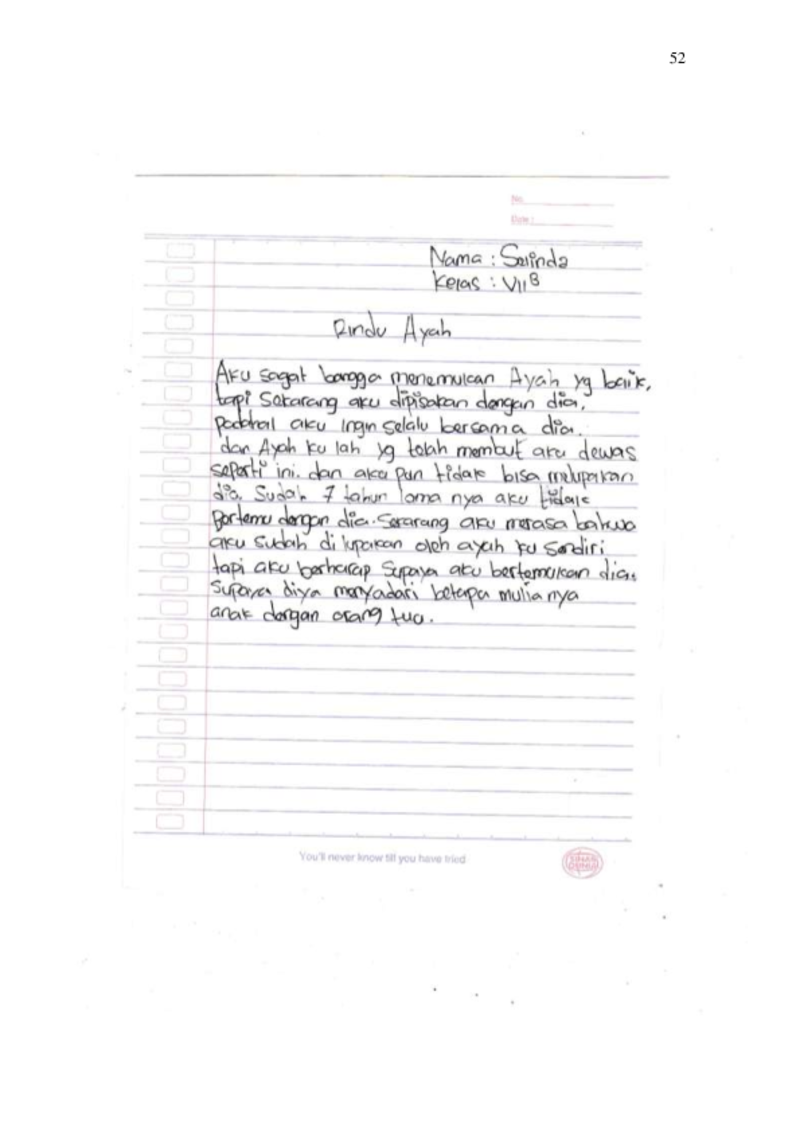 52
No.
Date :
Nama : Selinda
Kelas : VII B
Rindu Ayah
Aku sagat bangga menemukan Ayah yg baik,
tapi Sekarang aku dipisakan dengan dia,
padahal aku ingin selalu bersama dia.
dan Ayah ku lah yg telah membut aku dewas
seperti ini. dan aku pun tidak bisa melupakan
dia. Sudah 7 tahun lama nya aku tidak
bertemu dengan dia. Sekarang aku merasa bahwa
aku sudah di lupakan oleh ayah ku sendiri
tapi aku berharap Supaya aku bertemukan dia.
Supaya diya menyadari betapa mulia nya
anak dengan orang tua.
You'll never know till you have tried